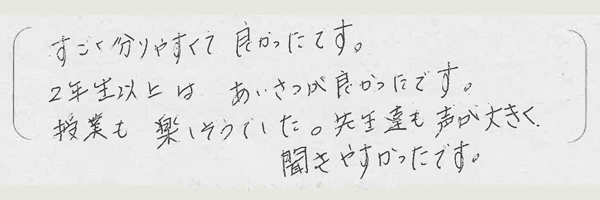 すごく分りやすくて良かったです。
2年生以上は あいさつが良かったです。
授業も 楽しそうでした。先生達も声が大きく
聞きやすかったです。